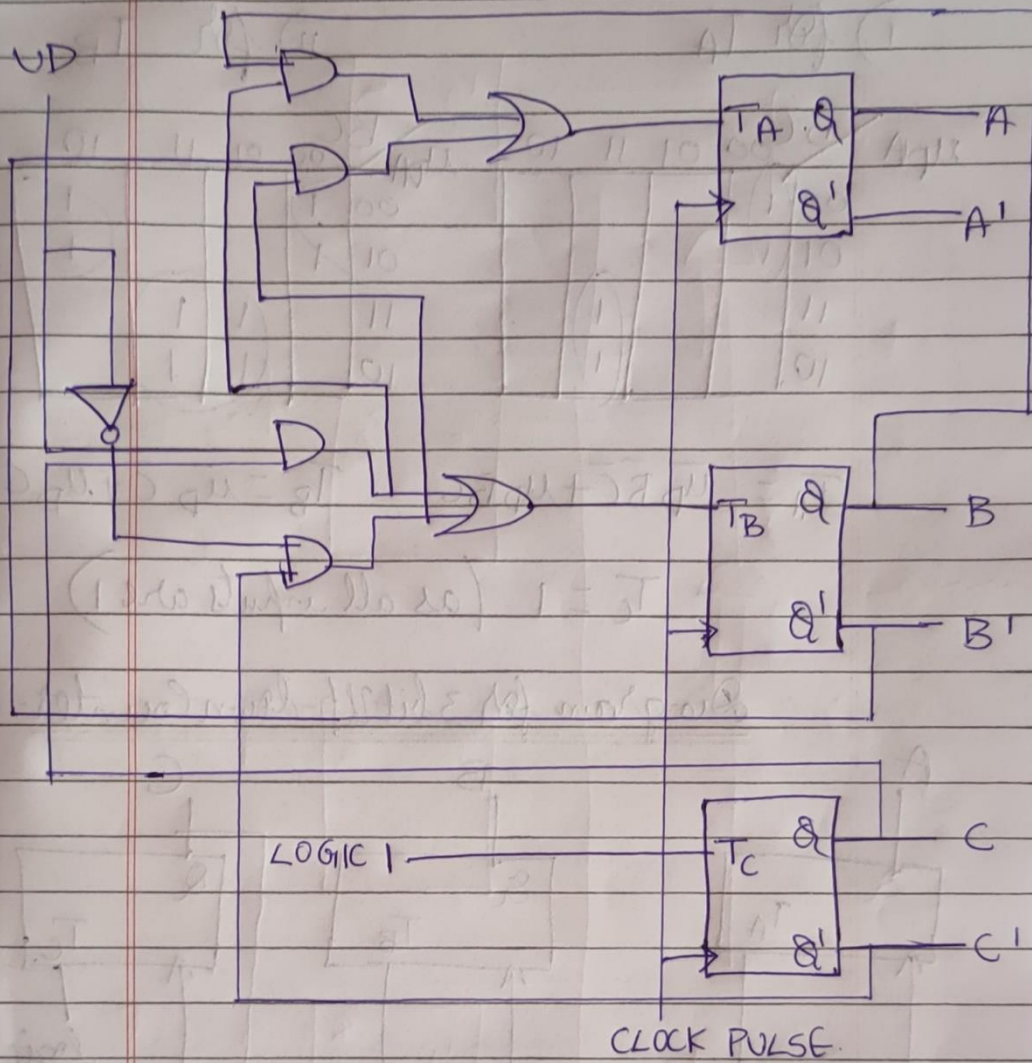 UD
TA Q A
Q' A'
TB Q B
Q' B'
LOGIC 1 TC Q C
Q' C'
CLOCK PULSE.